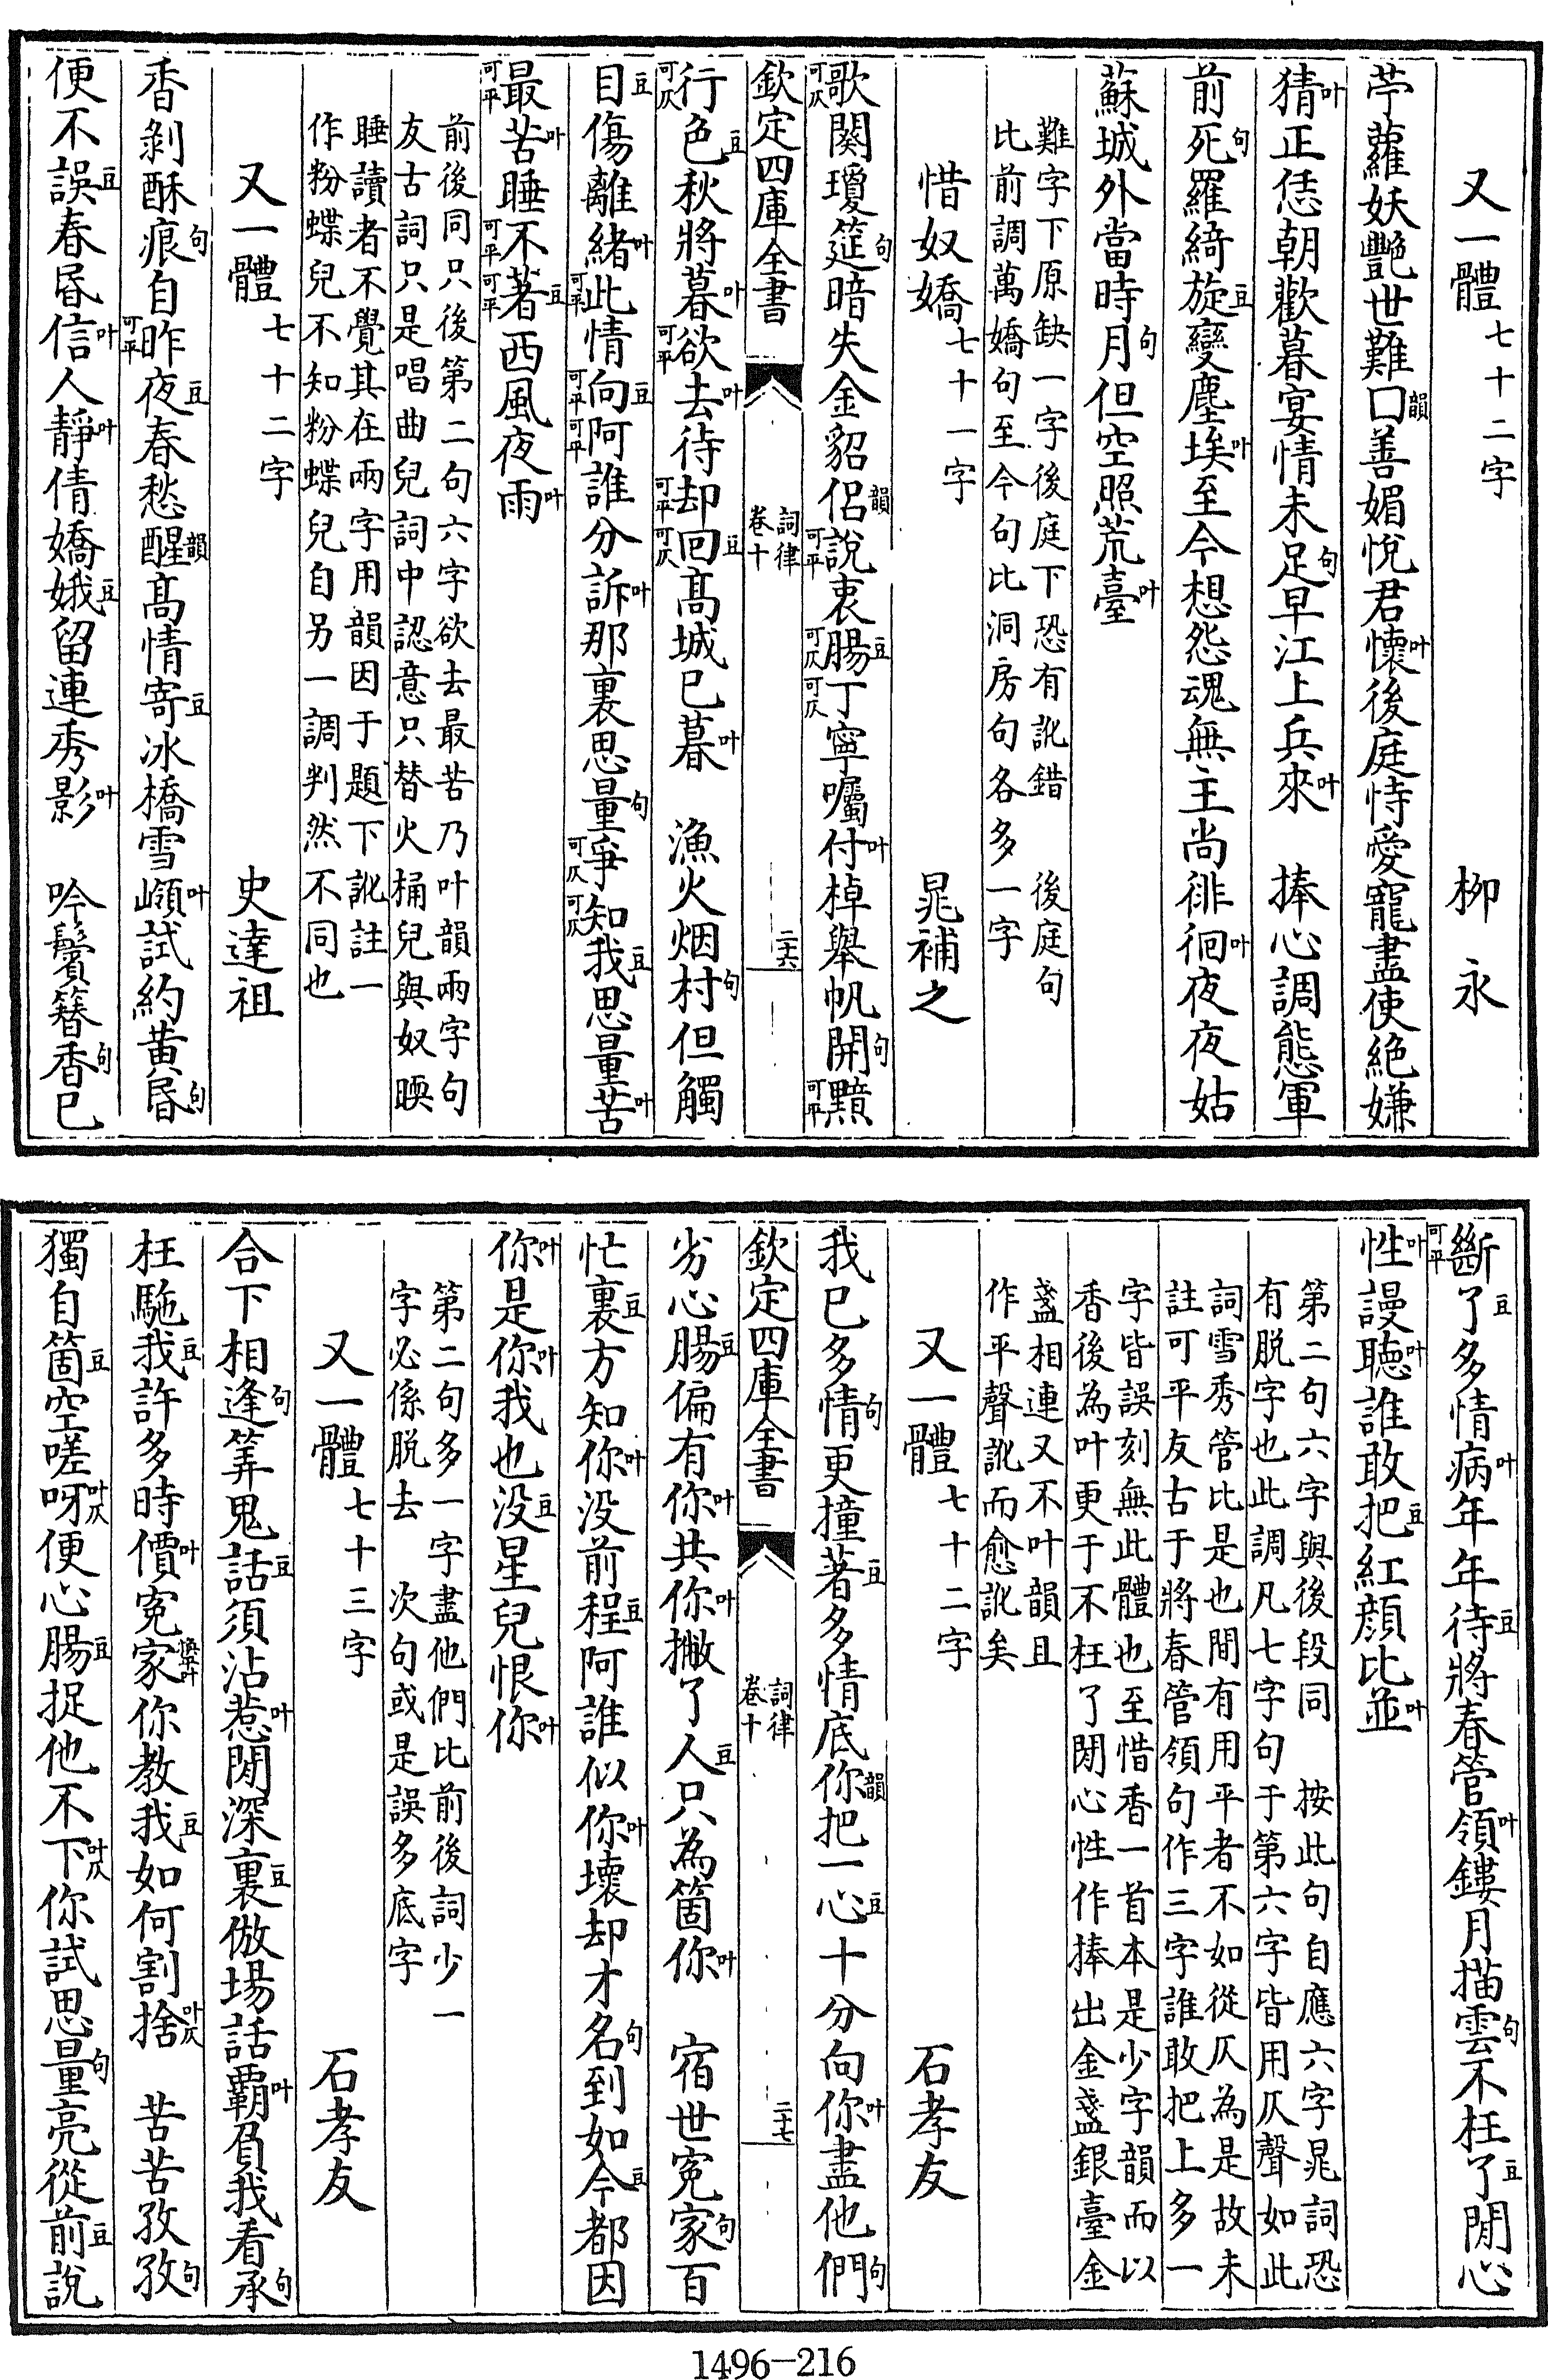 又一體七十二字 柳永
苧蘿妖艷世難口韻善媚悅君懷叶後庭恃愛寵盡使絶嫌
猜叶正恁朝歡暮宴情未足句早江上兵來叶 捧心調態軍
前死句羅綺旋豆變塵埃叶至今想怨魂無主尚徘徊叶夜夜姑
蘇城外當時月句但空照荒臺叶
難字下原缺一字後庭下恐有訛錯 後庭句
比前調萬嬌句至今句比洞房句各多一字
惜奴嬌七十一字 晁補之
歌可仄闋瓊筵句暗失金貂侶韻說可平衷腸豆可仄丁可仄寧囑付叶棹舉帆開句黯可平
欽定四庫全書 詞律卷十 二六
行可仄色豆秋將暮叶欲可平去叶待却可平回豆可仄髙城已暮叶 漁火烟村句但觸
目豆傷離緒叶此可平情向豆可平阿可平誰分訴叶那裏思量句爭可仄知可仄我豆思量苦叶
最可平苦叶睡不可平著豆可平西風夜雨叶
前後同只後第二句六字欲去最苦乃叶韻兩字句
友古詞只是唱曲兒詞中認意只替火桶兒與奴暖
睡讀者不覺其在兩字用韻因于題下訛註一
作粉蝶兒不知粉蝶兒自另一調判然不同也
又一體七十二字 史達祖
香剝酥痕句自昨可平夜豆春愁醒韻髙情寄豆冰橋雪嶺叶試約黄昏句
便不誤豆春昏信叶人靜叶倩嬌娥豆留連秀影叶 吟鬢簪香句已
斷可平了豆多情病叶年年待豆將春管領叶鏤月描雲句不枉了豆閒心
性叶謾聽叶誰敢把豆紅顔比並叶
第二句六字與後段同 按此句自應六字晁詞恐
有脱字也此調凡七字句于第六字皆用仄聲如此
詞雪秀管比是也間有用平者不如從仄為是故未
註可平友古于將春管領句作三字誰敢把上多一
字皆誤刻無此體也至惜香一首本是少字韻而以
香後為叶更于不枉了閒心性作捧出金盞銀臺金
盞相連又不叶韻且
作平聲訛而愈訛矣
又一體七十二字 石孝友
我已多情句更撞著豆多情底你韻把一心豆十分向你叶盡他們句
欽定四庫全書 詞律卷十 二七
劣心腸豆偏有你叶共你叶撇了人豆只為箇你叶 宿世寃家句百
忙裏豆方知你叶没前程豆阿誰似你叶壞却才名句到如今豆都因
你叶是你叶我也没豆星兒恨你叶
第二句多一字盡他們比前後詞少一
字必係脱去 次句或是誤多底字
又一體七十三字 石孝友
合下相逢句筭鬼話豆須沾惹叶閒深裏豆做場話霸叶負我看承句
枉駞我豆許多時價叶寃家換平叶你教我豆如何割捨叶仄 苦苦孜孜句
獨自箇豆空嗟呀叶仄便心腸豆捉他不下叶仄你試思量句亮從前豆說
1496-216